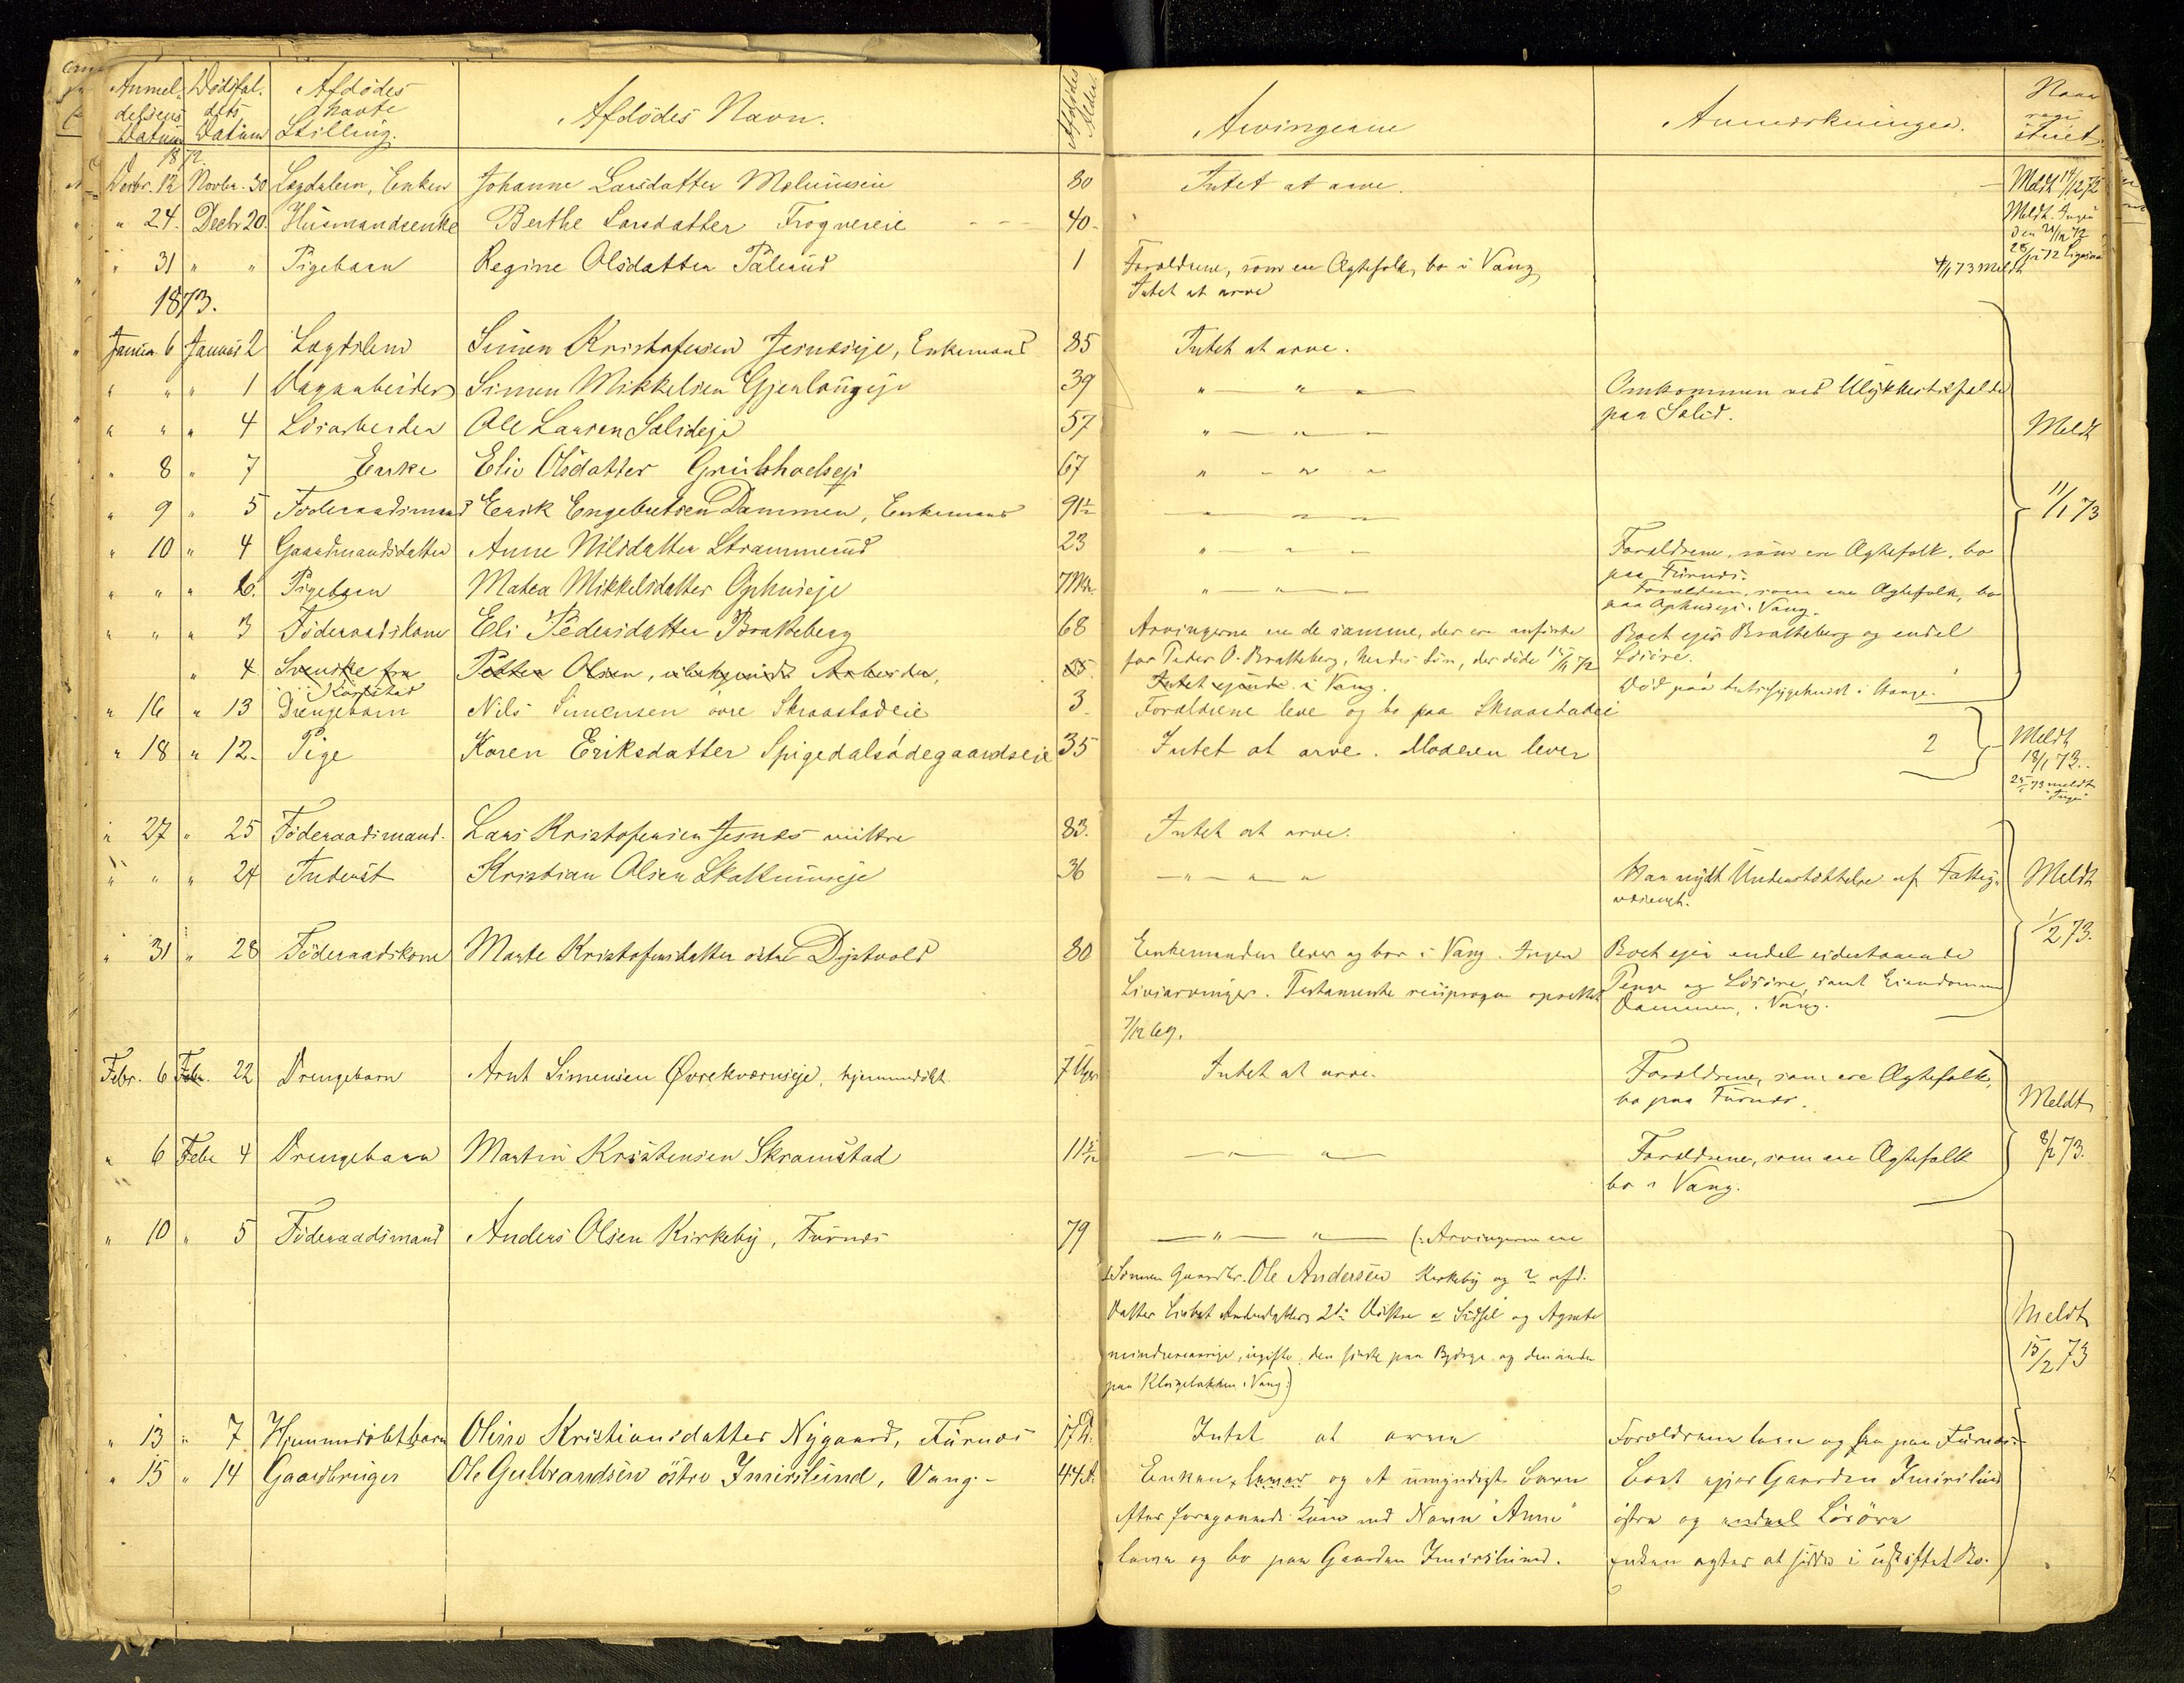 Anmeldelsens Datum | Dödsfaldets Datum | Afdödes havte Stilling. | Afdödes Navn. | Afdödes Alder. | Arvingerne | Anmerkninger. | Naar
1872.
Decbr. 12 | Novbr. 30 | Lægdslem, Enken | Johanne Larsdatter | 80 | Intet at arve. | Meldt 14/12 72
" 24. | Decbr 20. | Husmandsenke | Berthe Larsdatter Frognereie | 40. | Meldt. Ingen den 21/12 72
28/12 72 Ligesaa
" 31 | " " | Pigebarn | Regine Olsdatter | 1 | Forældrene, som ere Ægtefolk, bo i Vang, | 4/1 73 Meldt
Intet at arve
1873.
Januar 6 | Januar 2 | Lægdslem | Simen Kristofersen Jesneseje, Enkemand | 85 | Intet at arve.
" " | " 1 | Dagarbeider | Simen Mikkelsen | 39 | " — " — | Omkommen ved Ulykkestilfælde
paa Solid.
" " | " 4 | Lösarbeider | Ole Larsen Solideje | 57 | " — " — | Meldt
" 8 | " 7 | Enke | Elie Olsdatter | 67 | " — " —
" 9 | " 5 | Föderaadsmand | Erik Engebretsen Dammen, Enkemand | 91½ | " — " — | 11/1 73
" 10 | " 4 | Gaardmandsdatter | Anne Nilsdatter Strammerud | 23 | " — " — | Forældrene, som ere Ægtefolk, bo
paa Furnes.
" " | " 6. | Pigebarn | Matea Mikkelsdatter Ophuseje | 7 Mdr. | " — " — | Forældrene, som ere Ægtefolk, bo
paa Ophuseje i Vang.
" " | " 3 | Föderaadskone | Eli Pedersdatter Brakeberg | 68 | Arvingerne ere de samme, der ere anförte | Boet ejer Bratteberg og endel
for Peder O. Bratteberg, hendes Sön, der döde | Lösöre.
" 4 | Svenske fra Karlstad | Petter Olsen, Arbeider, | Intet i Vang. | Död paa i Stange.
" 16 | " 13 | Drengebarn | Nils Simensen övre Skraastadeie | 3 | Forældrene leve og bo paa Skraastadeie
" 18 | " 12. | Pige | Karen Eriksdatter Spigedalsödegaardseie | 35 | Intet at arve. Moderen lever | 2 | Meldt
18/1 73.
25/1 73 meldt
"Ingen"
" 27 | " 25 | Föderaadsmand. | Lars Kristofersen Jesnes mittre | 83. | Intet at arve.
" " | " 24 | Inderst | Kristian Olsen | 36 | — " — " | Har nydt Understöttelse af Fattig- | Meldt
væsenet.
" 31 | " 28 | Föderaadskone | Marte Kristofersdatter östre Dystvold | 80 | Enkemanden lever og bor i Vang. Ingen | Boet ejer endel udestaaende | 1/2 73.
Livsarvinger. Testamente reciprogue oprettet | Penge og Lösöre, samt Eiendommen
7/12 69. | Dammen, i Vang.
Febr. 6 | Febr. 22 | Drengebarn | Arnt Simensen Øvrekværnseje, hjemmedöbt | 7 Uger | Intet at arve. | Forældrene, som ere Ægtefolk,
bo paa Furnes. | Meldt
" 6 | Febr 4 | Drengebarn | Martin Kristensen Skramstad | 11 5/12 | — " — " — | Forældrene, som ere Ægtefolk | 8/2 73.
bo i Vang.
" 10 | " 5 | Föderaadsmand | Anders Olsen Kirkeby, Furnes | 79 | — " — " — (: Arvingerne ere
Sönnen Gaardbr. Ole Andersen Kirkeby og 2 afd.
Datter Lisbet Andersdatters 2de Döttre Sidsel og Agnete
mindreaarige, ugifte, den förste paa Bjørge og den anden | Meldt
paa Klingebakken i Vang:) | 15/2 73
" 13 | " 7 | Hjemmedöbt barn | Oline Kristiansdatter Nygaard, Furnes | 17 D. | Intet at arve | Forældrene leve og bo paa Furnes.
" 15 | " 14 | Gaardbruger | Ole Gulbrandsen östre Imerslund, Vang. | 44 A. | Enken lever og et umyndigt barn | Boet ejer Gaarden Imerslund
efter foregaaende Kone ved Navn "Anne" | östre og endeel Lösöre
lever og bo paa Gaarden Imerslund. | Enken agter at sidde i uskiftet Bo.